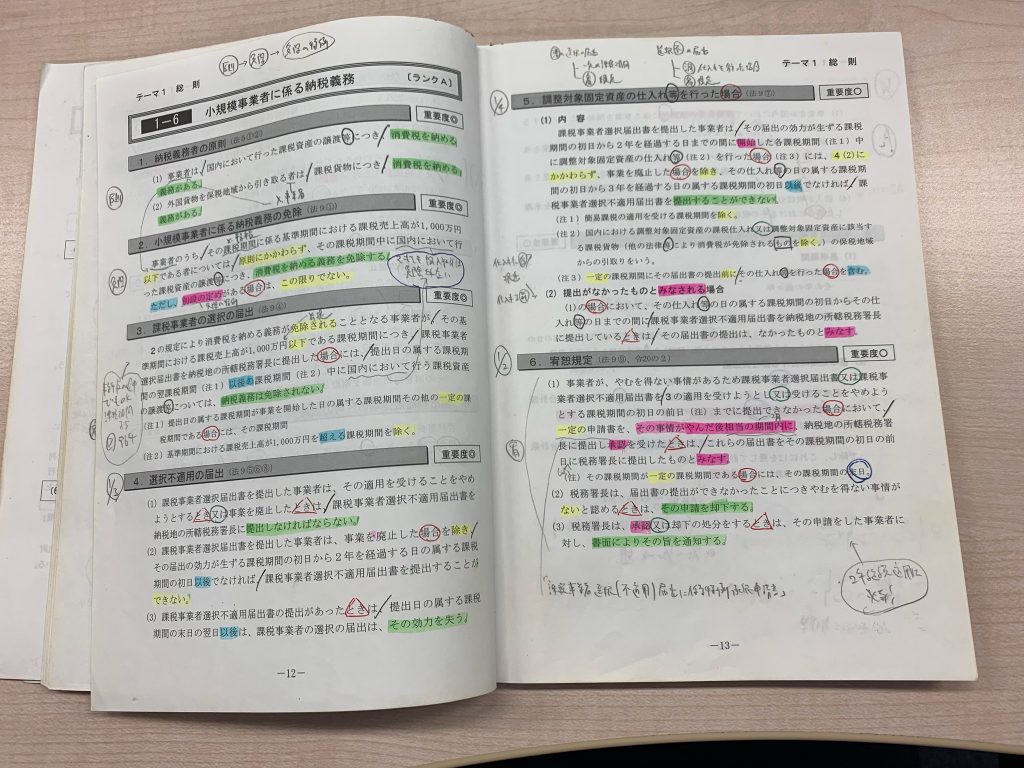 原則→免除→免除の特例
テーマ1 総 則
1-6 小規模事業者に係る納税義務 〔ランクA〕
1．納税義務者の原則(法5①②) 重要度◎
(1) 事業者は/国内において行った課税資産の譲渡等につき/消費税を納める
義務がある。
(2) 外国貨物を保税地域から引き取る者は/課税貨物につき/消費税を納める
義務がある。
2．小規模事業者に係る納税義務の免除(法9①) 重要度◎
事業者のうち/その課税期間に係る基準期間における課税売上高が1,000万円
以下である者については/原則にかかわらず、その課税期間中に国内において行
った課税資産の譲渡等につき、消費税を納める義務を免除する。
ただし、別段の定めがある場合は、この限りでない。
3．課税事業者の選択の届出(法9④) 重要度◎
2の規定により消費税を納める義務が免除されることとなる事業者が/その基
準期間における課税売上高が1,000万円以下である課税期間につき/課税事業者
選択届出書を納税地の所轄税務署長に提出した場合には/提出日の属する課税期
間の翌課税期間(注1)以後の課税期間(注2)中に国内において行う課税資産
の譲渡等については、納税義務は免除されない。
(注1) 提出日の属する課税期間が事業を開始した日の属する課税期間その他の一定の課
税期間である場合には、その課税期間
(注2) 基準期間における課税売上高が1,000万円を超える課税期間を除く。
1/3
4．選択不適用の届出(法9⑤⑥⑧) 重要度◎
(1) 課税事業者選択届出書を提出した事業者は、その適用を受けることをやめ
ようとするとき又は事業を廃止したときは/課税事業者選択不適用届出書を
納税地の所轄税務署長に提出しなければならない。
(2) 課税事業者選択届出書を提出した事業者は、事業を廃止した場合を除き/
その届出の効力が生ずる課税期間の初日から2年を経過する日の属する課税
期間の初日以後でなければ/課税事業者選択不適用届出書を提出することが
できない。
(3) 課税事業者選択不適用届出書の提出があったときは/提出日の属する課税
期間の末日の翌日以後は、課税事業者の選択の届出は、その効力を失う。
―12―
テーマ1 総 則
5．調整対象固定資産の仕入れ等を行った場合(法9⑦) 重要度○
(1) 内 容
課税事業者選択届出書を提出した事業者は/その届出の効力が生ずる課税
期間の初日から2年を経過する日までの間に開始した各課税期間(注1)中
に調整対象固定資産の仕入れ等(注2)を行った場合(注3)には、4(2)に
かかわらず、事業を廃止した場合を除き、その仕入れ等の日の属する課税期
間の初日から3年を経過する日の属する課税期間の初日以後でなければ/課
税事業者選択不適用届出書を提出することができない。
(注1) 簡易課税の適用を受ける課税期間を除く。
(注2) 国内における調整対象固定資産の課税仕入れ又は調整対象固定資産に該当す
る課税貨物(他の法律等により消費税が免除されるものを除く。)の保税地域
からの引取りをいう。
(注3) 一定の課税期間にその届出書の提出前に/その仕入れ等を行った場合を含む。
(2) 提出がなかったものとみなされる場合
(1)の場合において、その仕入れ等の日の属する課税期間の初日からその仕
入れ等の日までの間に/課税事業者選択不適用届出書を納税地の所轄税務署長
に提出しているときは/その届出書の提出は、なかったものとみなす。
1/2
6．宥恕規定(法9⑨、令20の2) 重要度○
(1) 事業者が、やむを得ない事情があるため課税事業者選択届出書又は課税事
業者選択不適用届出書を/3の適用を受けようとし又は受けることをやめよう
とする課税期間の初日の前日(注)までに提出できなかった場合において/
一定の申請書を、その事情がやんだ後相当の期間内に、納税地の所轄税務署
長に提出し承認を受けたときは/これらの届出書をその課税期間の初日の前
日に税務署長に提出したものとみなす。
(注) その課税期間が一定の課税期間である場合には、その課税期間の末日。
(2) 税務署長は、届出書の提出ができなかったことにつきやむを得ない事情が
ないと認めるときは、その申請を却下する。
(3) 税務署長は、承認又は却下の処分をするときは、その申請をした事業者に
対し、書面によりその旨を通知する。
―13―